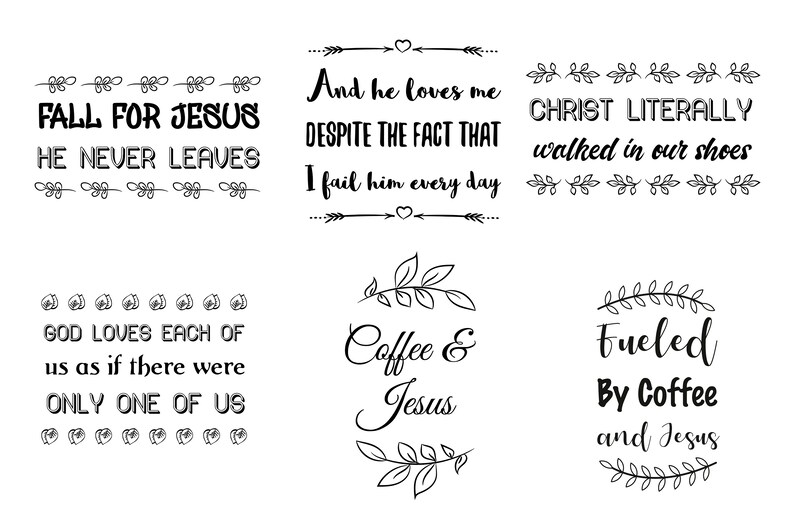 FALL FOR JESUS
HE NEVER LEAVES
And he loves me
DESPITE THE FACT THAT
I fail him every day
CHRIST LITERALLY
walked in our shoes
GOD LOVES EACH OF
us as if there were
ONLY ONE OF US
Coffee &
Jesus
Fueled
By Coffee
and Jesus